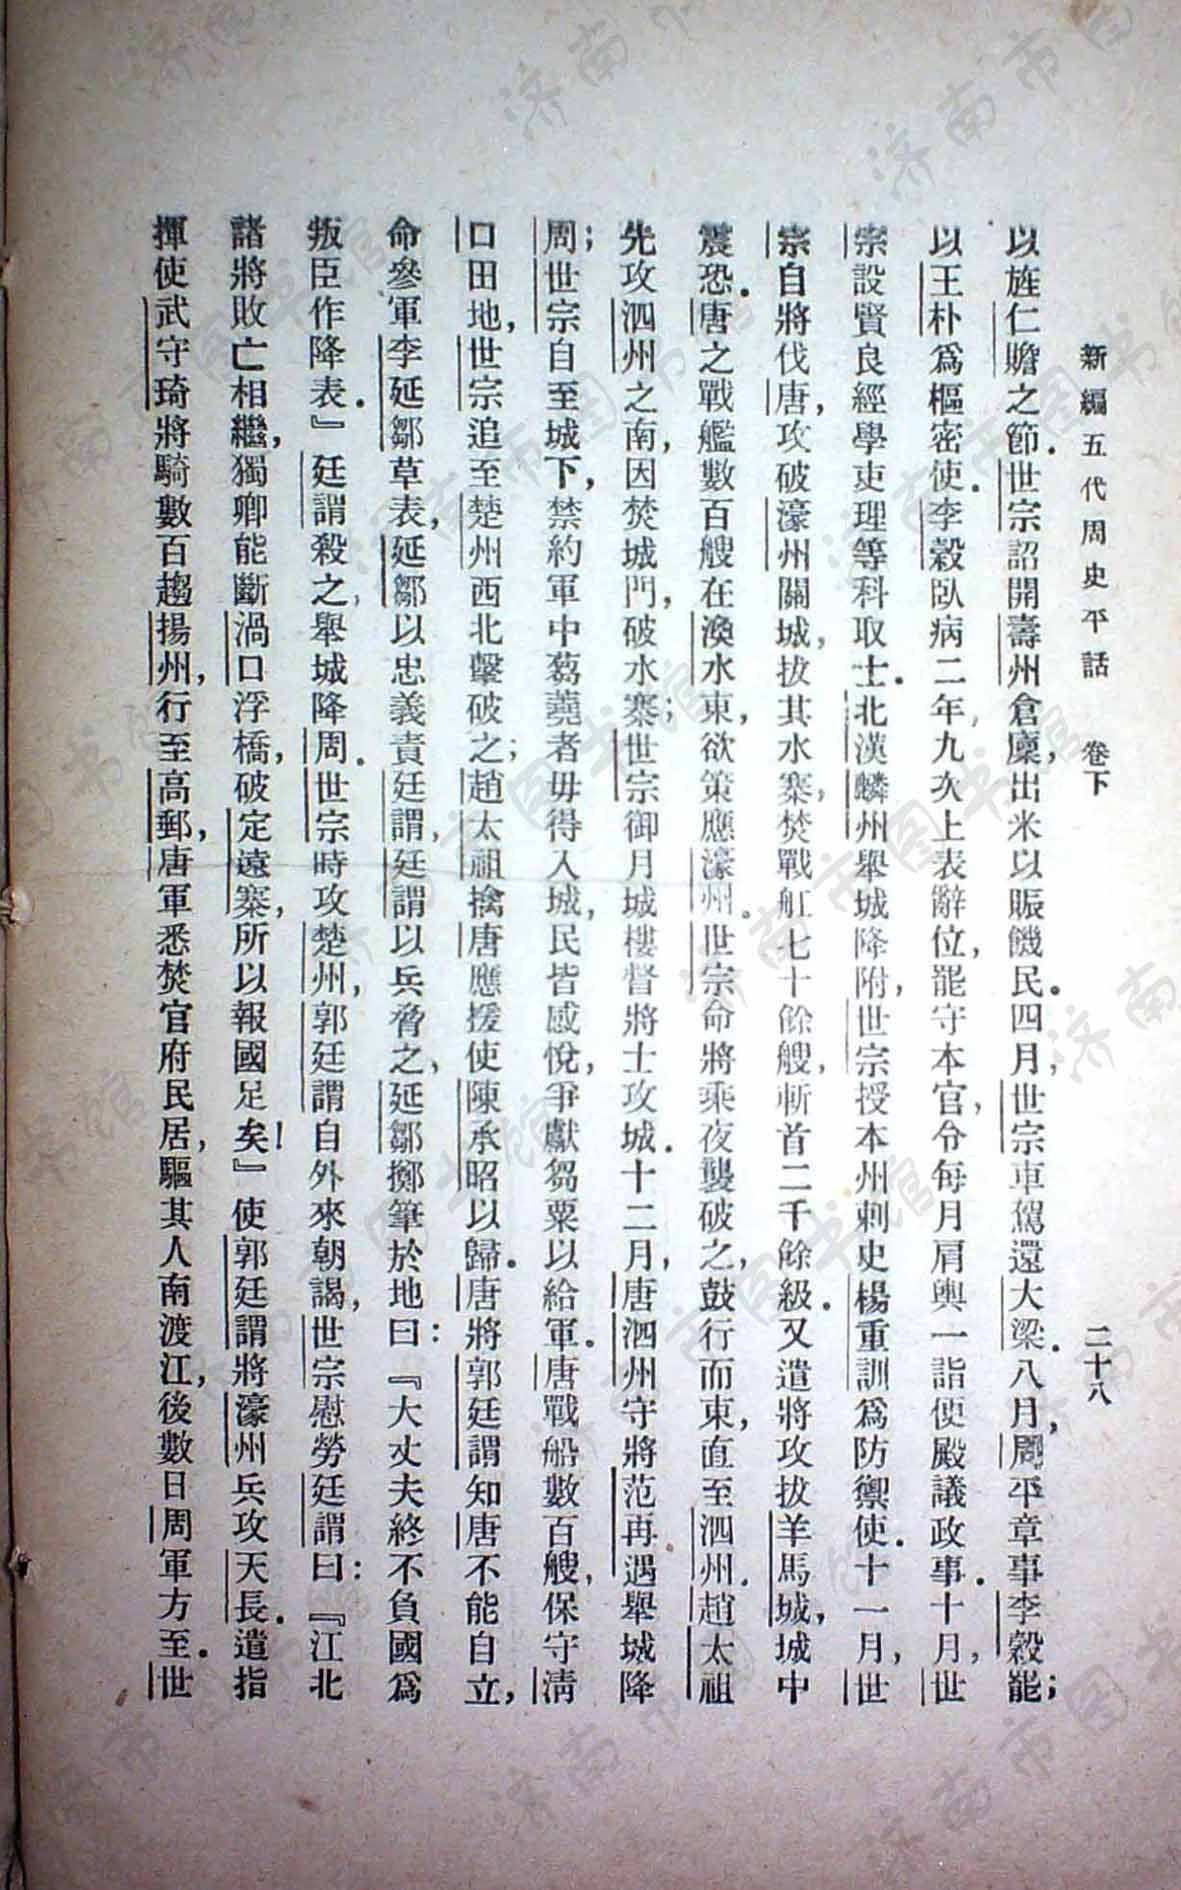 新編五代周史平話　卷下　二十八
以旌仁贍之節．世宗詔開壽州倉廩，出米以賑饑民．四月，世宗車駕還大梁．八月，周平章事李穀罷；
以王朴爲樞密使．李穀臥病二年，九次上表辭位，罷守本官，令每月肩輿一詣便殿議政事．十月，世
宗設賢良經學吏理等科取士．北漢麟州舉城降附，世宗授本州刺史楊重訓爲防禦使．十一月，世
宗自將伐唐，攻破濠州關城，拔其水寨，焚戰舡七十餘艘，斬首二千餘級．又遣將攻拔羊馬城，城中
震恐．唐之戰艦數百艘在渙水東，欲策應濠州．世宗命將乘夜襲破之，鼓行而東，直至泗州．趙太祖
先攻泗州之南，因焚城門，破水寨；世宗御月城樓督將士攻城．十二月，唐泗州守將范再遇舉城降
周；世宗自至城下，禁約軍中蒭蕘者毋得入城，民皆感悅，爭獻芻粟以給軍．唐戰船數百艘，保守淸
口田地，世宗追至楚州西北擊破之；趙太祖擒唐應援使陳承昭以歸．唐將郭廷謂知唐不能自立，
命參軍李延鄒草表，延鄒以忠義責廷謂，廷謂以兵脅之，延鄒擲筆於地曰：『大丈夫終不負國爲
叛臣作降表．』廷謂殺之，舉城降周．世宗時攻楚州，郭廷謂自外來朝謁，世宗慰勞廷謂曰：『江北
諸將敗亡相繼，獨卿能斷渦口浮橋，破定遠寨，所以報國足矣！』使郭廷謂將濠州兵攻天長．遣指
揮使武守琦將騎數百趨揚州，行至高郵，唐軍悉焚官府民居，驅其人南渡江，後數日周軍方至．世